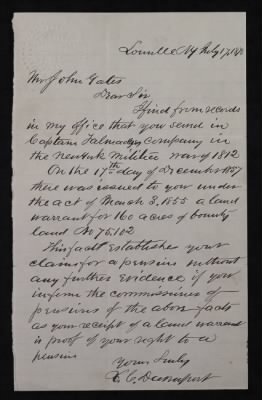 Lowville NY July 17, 18
Mr John Gates
Dear Sir
I find from records
in my office that you served in
Captain Company in
the New York Militia war of 1812
On the 17th day of December 1857
there was issued to you under
the act of March 3, 1855 a land
warrant for 160 acres of bounty
land No 75102
This fact establishes your
claim for a pension without
any further evidence if you
inform the commissioner of
pensions of the above facts
as your receipt of a land warrant
is proof of your right to a
pension
Yours Truly
C. Davenport